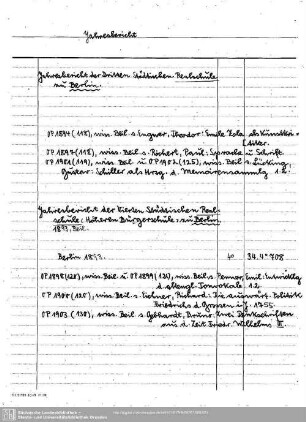 Jahresbericht
Jahresbericht der Dritten Städtischen Realschule
zu Berlin.
OP 1894 (118), wiss. Beil. s. Engwer, Theodor: Emile Zola als Kunstkri=
tiker.
OP 1897 (118), wiss. Beil. s. Richert, Paul: Sprache u. Schrift
OP 1901 (119), wiss. Beil. u. OP 1902 (125), wiss. Beil. s. Lücking,
Gustav: Schiller als Hrsg. d. Memoirensammlg 1.2.
Jahresbericht der Vierten Städtischen Real=
schule (Höheren Bürgerschule) zu Berlin.
1893, Beil.
Berlin 1893. 4° 34.4° 708
OP 1898 (120), wiss. Beil. u. OP 1899 (121), wiss. Beil. s. Penner, Emil: Entwicklg
d. altengl. Tonvokale 1.2
OP 1900 (120), wiss. Beil. s. Richard: Die auswärt. Politik
Friedrichs d. Grossen i. J. 1755.
OP 1903 (130), wiss. Beil. s. Gebhardt, Bruno: Zwei Denkschriften
aus d. Zeit Friedr. Wilhelms III.